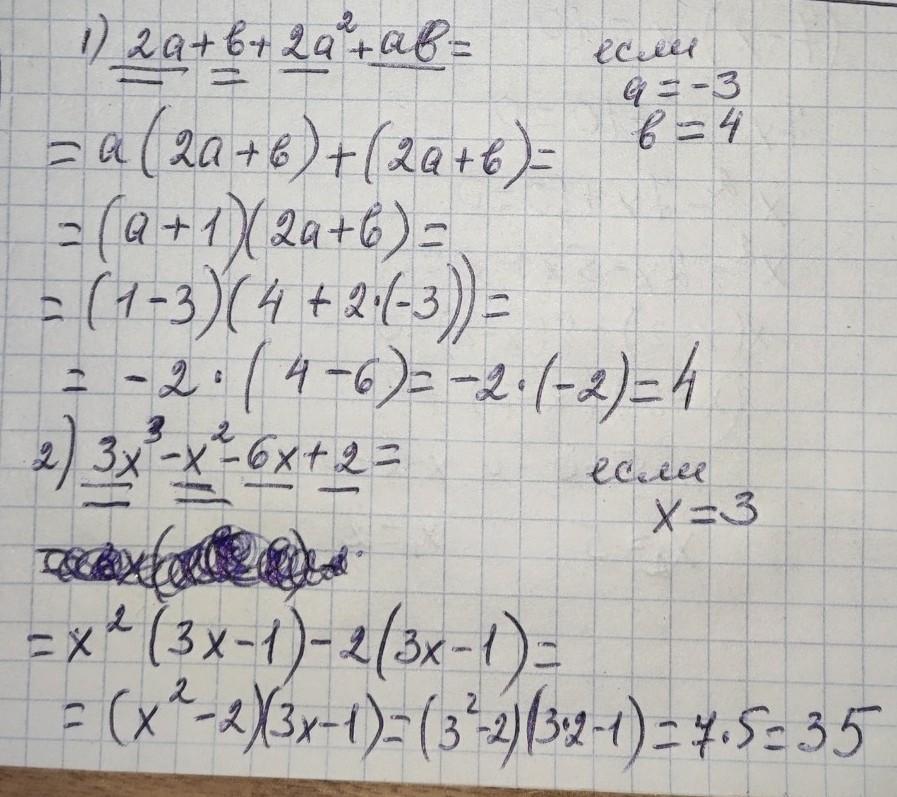 1) 2a+в+2a²+aв=
если
a=-3
в=4
=a(2a+в)+(2a+в)=
=(a+1)(2a+в)=
=(1-3)(4+2·(-3))=
=-2·(4-6)=-2·(-2)=4
2) 3x³-x²-6x+2=
если
x=3
=x²(3x-1)-2(3x-1)=
=(x²-2)(3x-1)=(3²-2)(3·2-1)=7·5=35